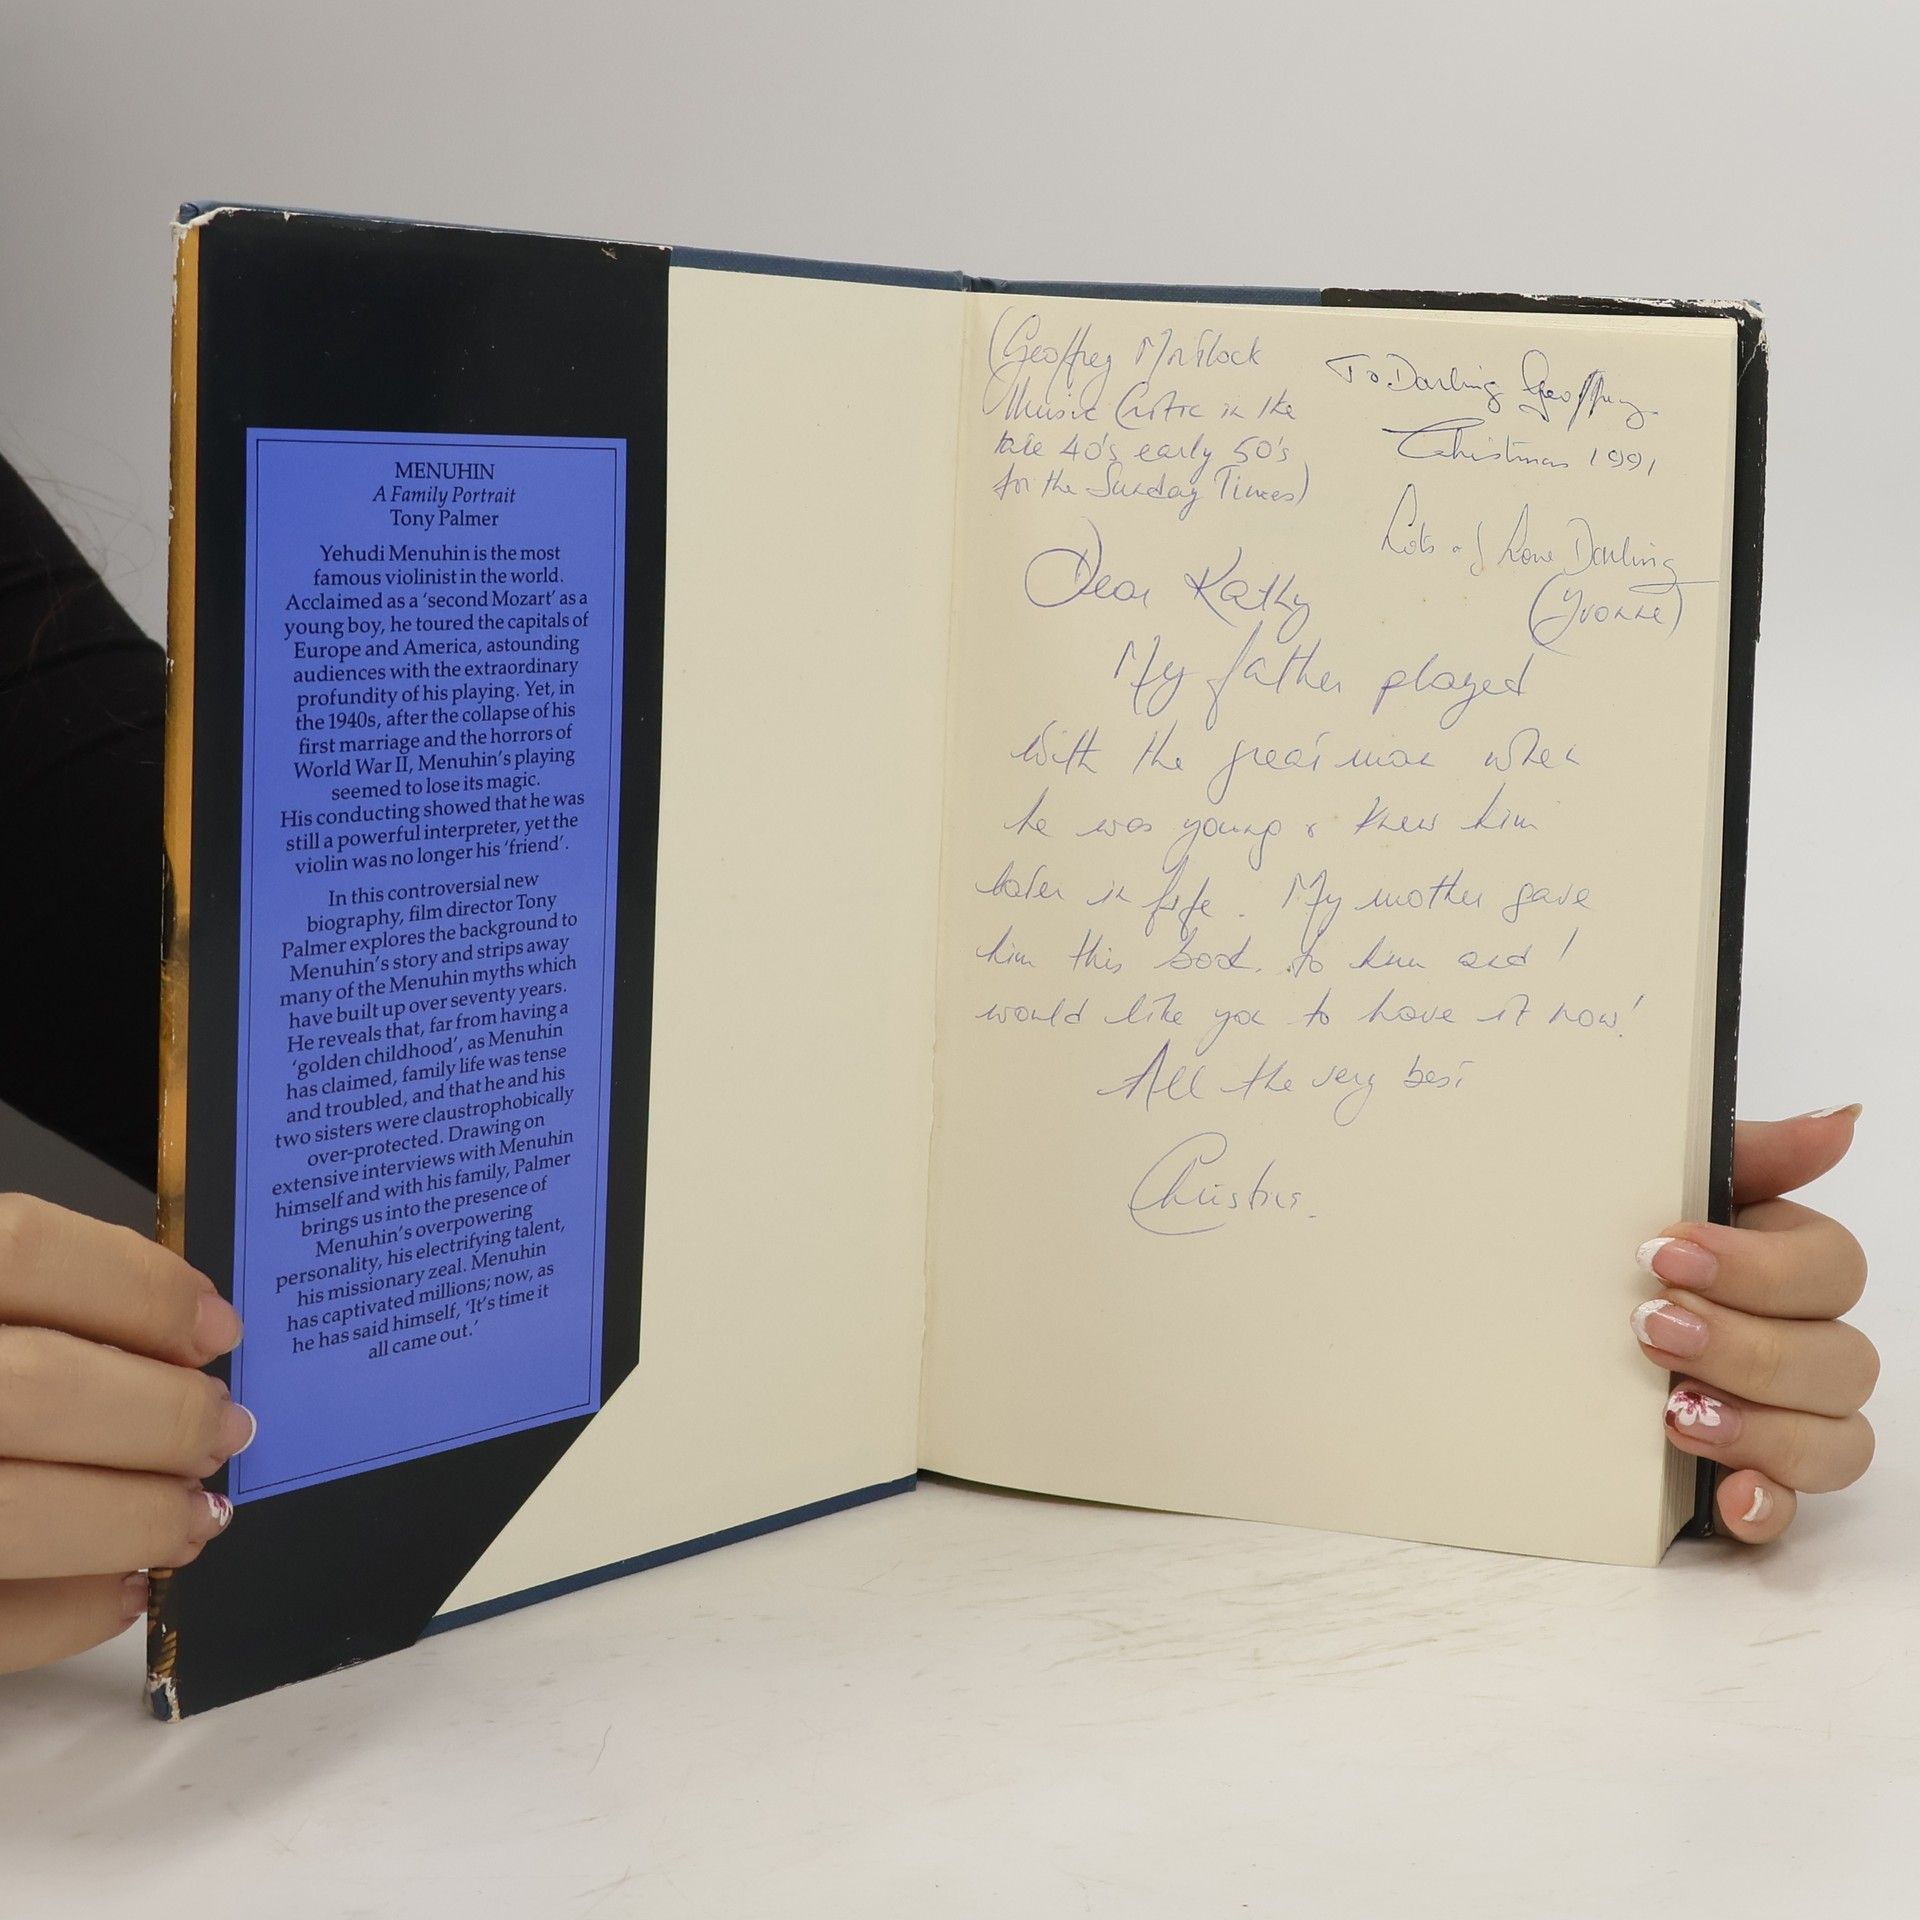 MENUHIN
A Family Portrait
Tony Palmer
Yehudi Menuhin is the most
famous violinist in the world.
Acclaimed as a ‘second Mozart’ as a
young boy, he toured the capitals of
Europe and America, astounding
audiences with the extraordinary
profundity of his playing. Yet, in
the 1940s, after the collapse of his
first marriage and the horrors of
World War II, Menuhin’s playing
seemed to lose its magic.
His conducting showed that he was
still a powerful interpreter, yet the
violin was no longer his ‘friend’.
In this controversial new
biography, film director Tony
Palmer explores the background to
Menuhin’s story and strips away
many of the Menuhin myths which
have built up over seventy years.
He reveals that, far from having a
‘golden childhood’, as Menuhin
has claimed, family life was tense
and troubled, and that he and his
two sisters were claustrophobically
over-protected. Drawing on
extensive interviews with Menuhin
himself and with his family, Palmer
brings us into the presence of
Menuhin’s overpowering
personality, his electrifying talent,
his missionary zeal. Menuhin
has captivated millions; now, as
he has said himself, ‘It’s time it
all came out.’
(Geoffrey
Music Critic in the
late 40's early 50's
for the Sunday Times)
To Darling Geoffrey
Christmas 1991
Lots of Love Darling
(Yvonne)
Dear Kathy
My father played
with the great man when
he was young & knew him
later in life. My mother gave
him this book. to him and I
would like you to have it now!
All the very best
Christine.